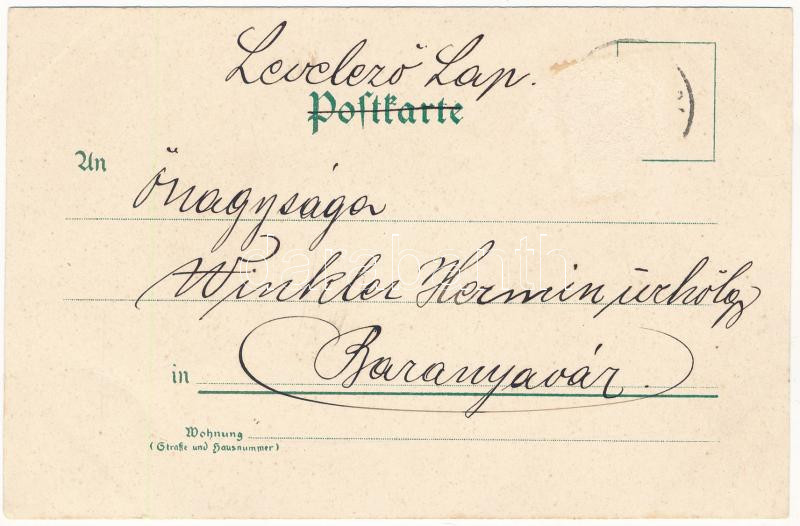 Levelező Lap.
Postkarte
An
Őnagysága
Winkler Hermin úrhölgy
in Baranyavár.
Wohnung
(Straße und Hausnummer)